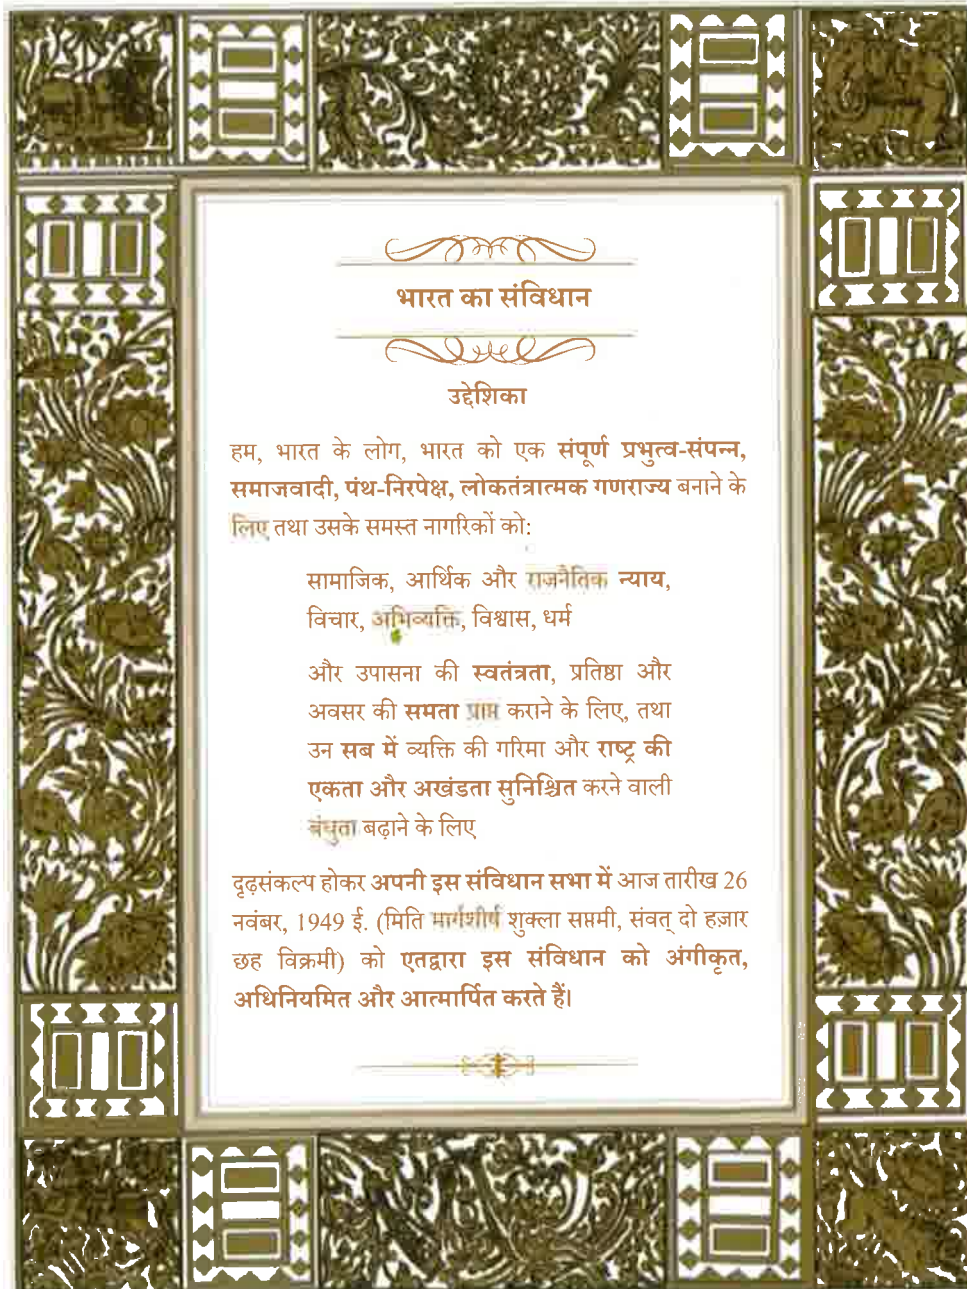 भारत का संविधान
उद्देशिका
हम, भारत के लोग, भारत को एक संपूर्ण प्रभुत्व-संपन्न,
समाजवादी, पंथ-निरपेक्ष, लोकतंत्रात्मक गणराज्य बनाने के
लिए तथा उसके समस्त नागरिकों को:
सामाजिक, आर्थिक और राजनैतिक न्याय,
विचार, अभिव्यक्ति, विश्वास, धर्म
और उपासना की स्वतंत्रता, प्रतिष्ठा और
अवसर की समता प्राप्त कराने के लिए, तथा
उन सब में व्यक्ति की गरिमा और राष्ट्र की
एकता और अखंडता सुनिश्चित करने वाली
बंधुता बढ़ाने के लिए
दृढ़संकल्प होकर अपनी इस संविधान सभा में आज तारीख 26
नवंबर, 1949 ई. (मिति मार्गशीर्ष शुक्ला सप्तमी, संवत् दो हज़ार
छह विक्रमी) को एतद्वारा इस संविधान को अंगीकृत,
अधिनियमित और आत्मार्पित करते हैं।